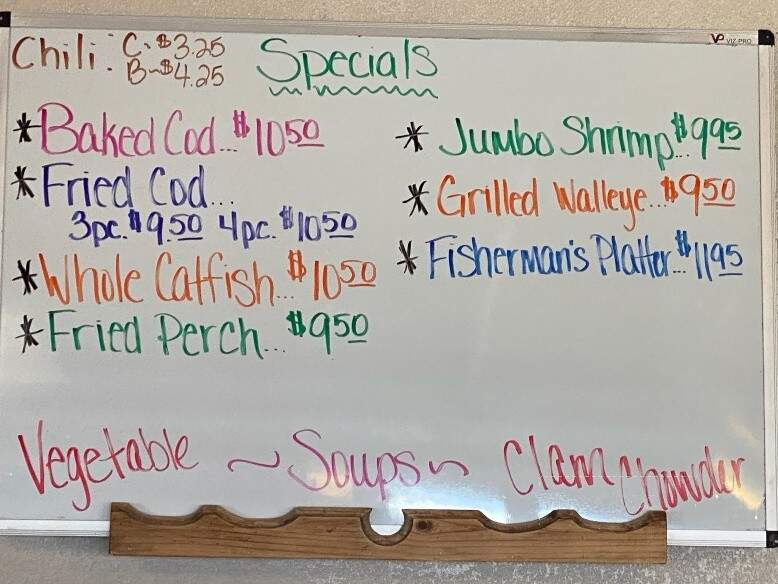 Chili: C~$3.25
B~$4.25
Specials
VIZ-PRO
*Baked Cod...$10.50
*Fried Cod...
3pc.$9.50 4pc.$10.50
*Whole Catfish...$10.50
*Fried Perch...$9.50
*Jumbo Shrimp...$9.95
*Grilled Walleye...$9.50
*Fisherman's Platter...$11.95
Vegetable ~ Soups ~ Clam Chowder